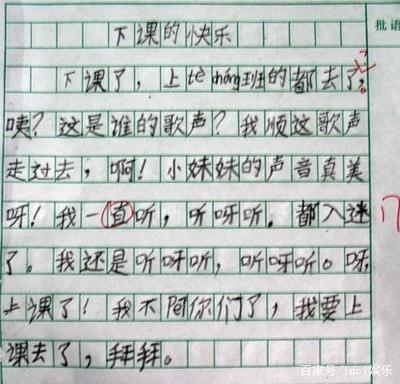 批语
下课的快乐
下课了，上tè cháng班的都去了。
咦？这是谁的歌声？我顺这歌声
走过去，啊！小妹妹的声音真美
呀！我一直听，听呀听，都入迷
了。我还是听呀听，听呀听。呀，
上课了！我不陪你们了，我要上
课去了，拜拜。
百家号/idol娱乐